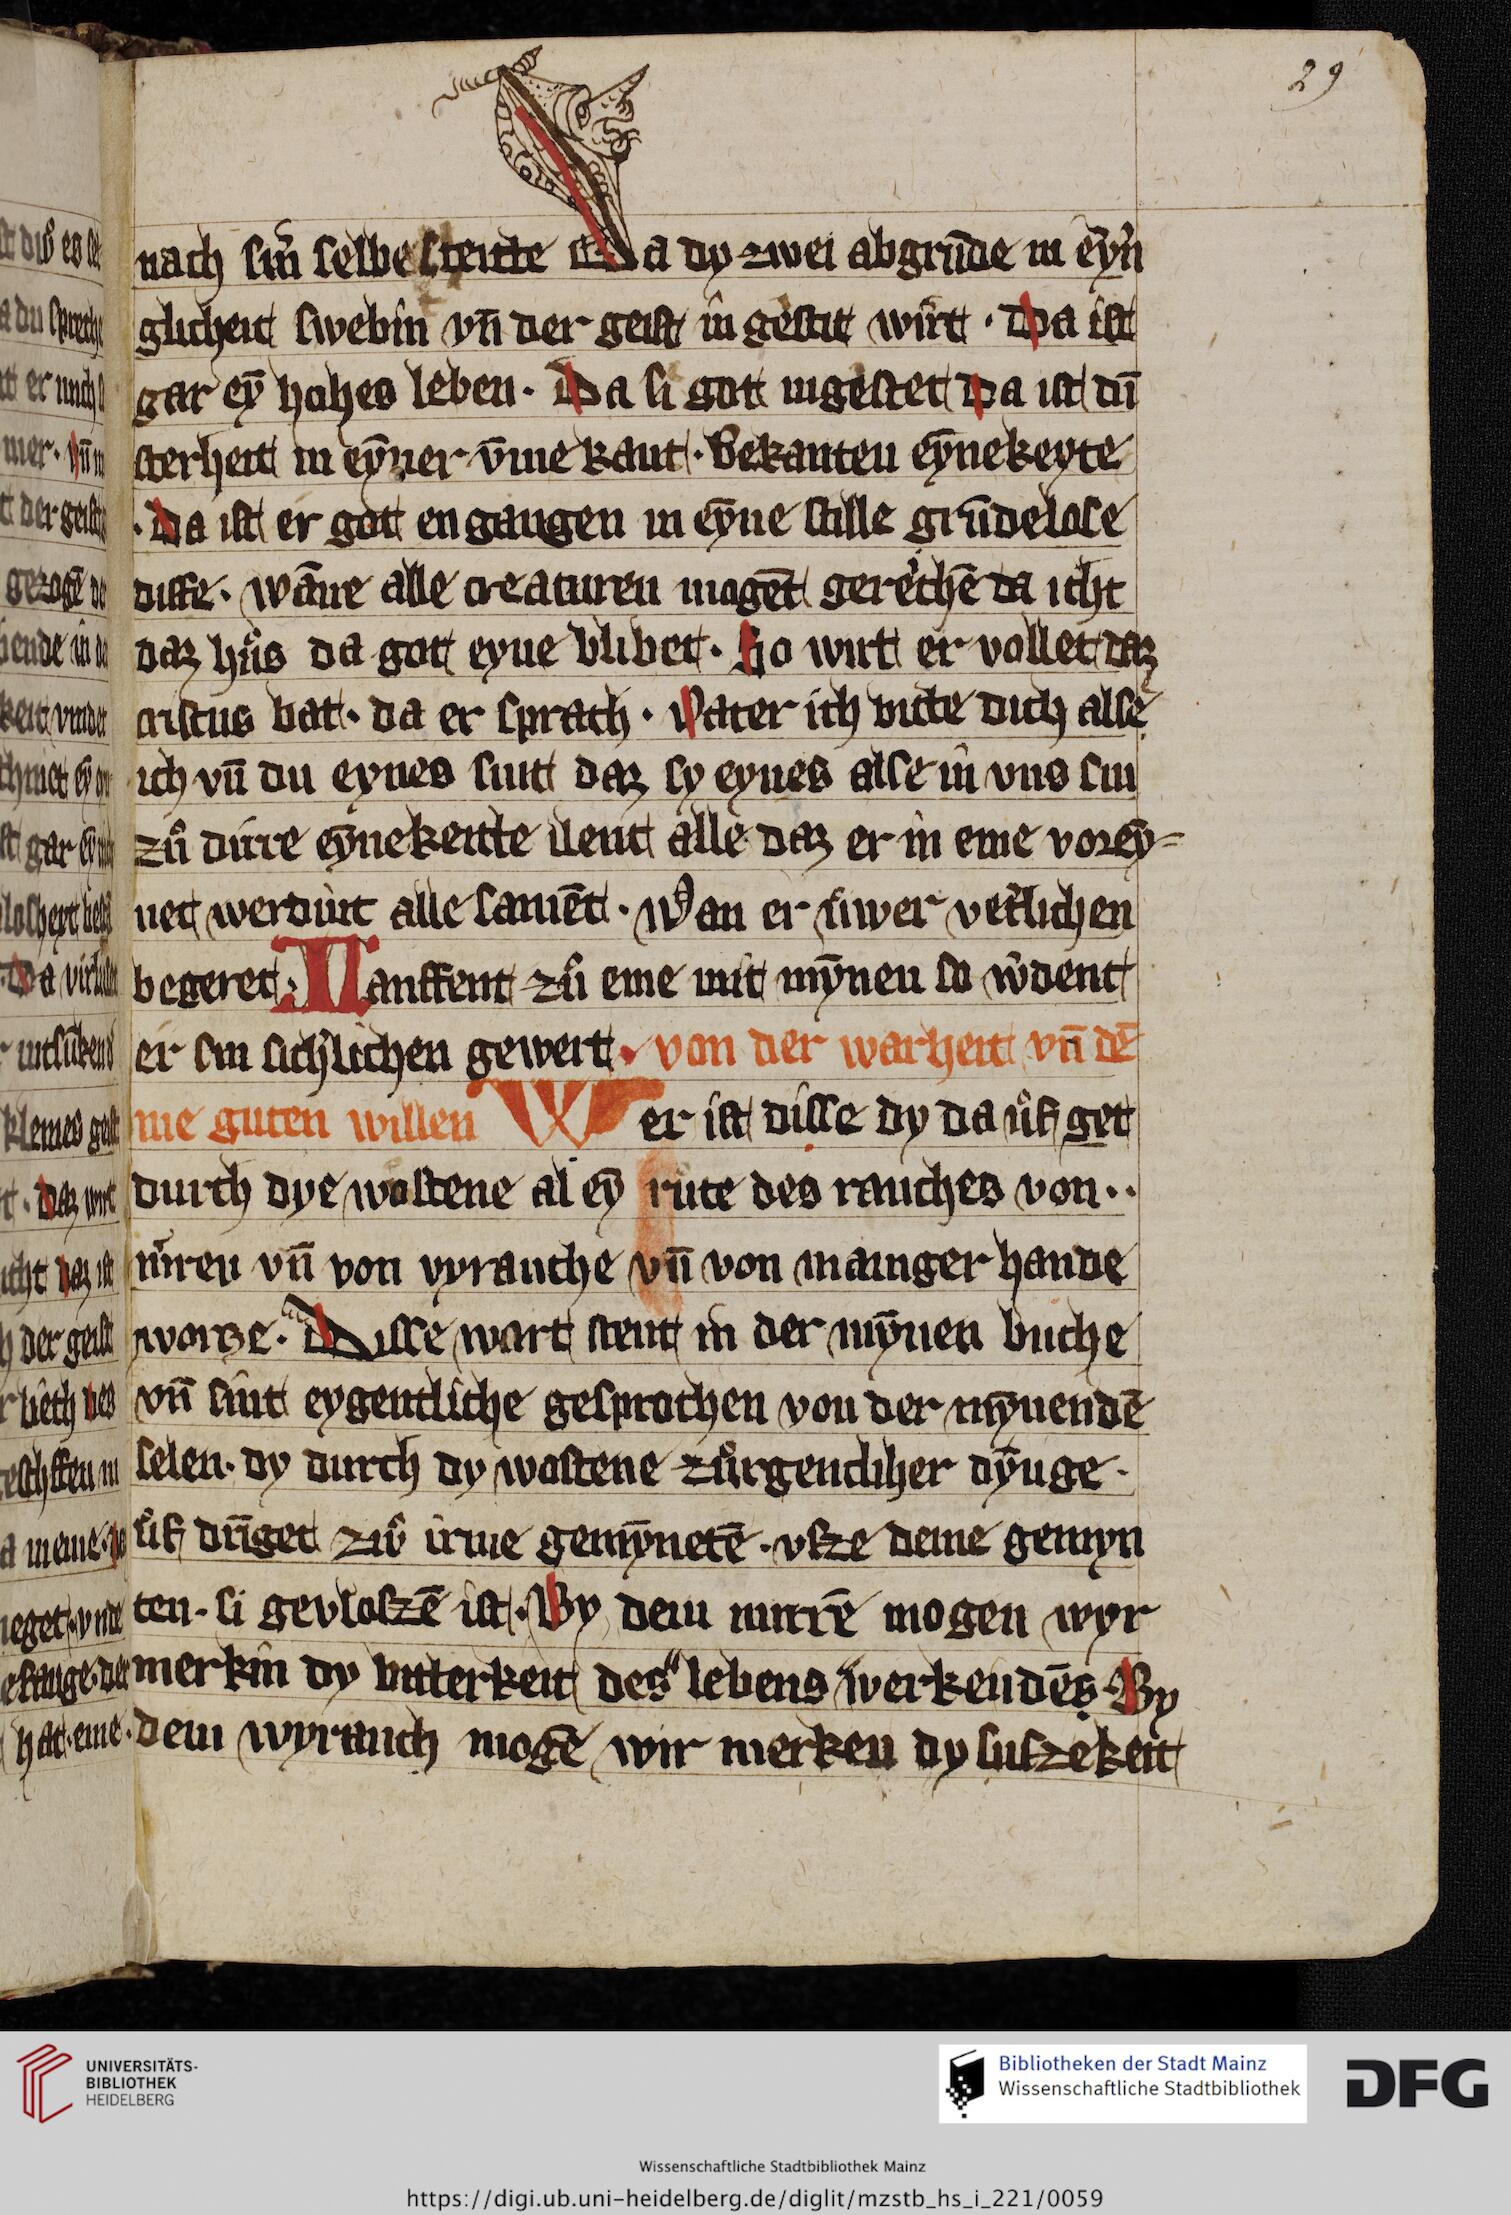 29
nach sin̄ selbe steitte Da dy zwei abgrūde in eỹn
glicheit swebin vn̄ der geist in gestit wirt · Da ist
gar eȳ hohes leben · Da si got ingestet Da ist dū
sterheit in eȳner v̄me kant · Bekanten eȳnekeyte
· Da ist er got engangen in eȳne stille grūdelose
diffe · wāne alle creaturen mogēt gerechē da icht
daz hůs da got eyne blibet · So wirt er vollet daz
cristus bat · da er sprach · Vater ich bitte dich alse
ich vn̄ du eynes sint daz sy eynes alse in vns sin
zů dirre eȳnekeitte ilent alle daz er in eme voreȳ=
net werdint alle samēt · Wan er ůwer veťlichen
begeret · Lauffent zů eme mit mȳnen so w̾dent
er sin sich̾lichen gewert · von der warheit vn̄ dē
me guten willen Wer ist disse dy da ůf get
durch dye wůstene al eȳ růte des rauches von ··
mirren vn̄ von vyrauche vn̄ von mainger hande
worze · Disse wort stent in der mȳnen buche
vn̄ sint eygentliche gesprochen von der mȳnendē
selen · dy durch dy wostene zůrgenclicher dȳnge ·
ůf drīget zů irme gemȳnetē · vsze deme gemyn
ten · si gevloszē ist · By dem mirrē mogen wyr
merkin dy bitterkeit des lebens werkendēs By
dem wyrauch mogē wir merken dy suszekeit
UNIVERSITÄTS-
BIBLIOTHEK
HEIDELBERG
Bibliotheken der Stadt Mainz
Wissenschaftliche Stadtbibliothek
DFG
Wissenschaftliche Stadtbibliothek Mainz
https://digi.ub.uni-heidelberg.de/diglit/mzstb_hs_i_221/0059